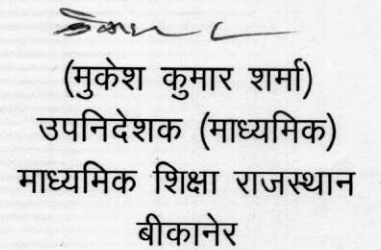 (मुकेश कुमार शर्मा)
उपनिदेशक (माध्यमिक)
माध्यमिक शिक्षा राजस्थान
बीकानेर